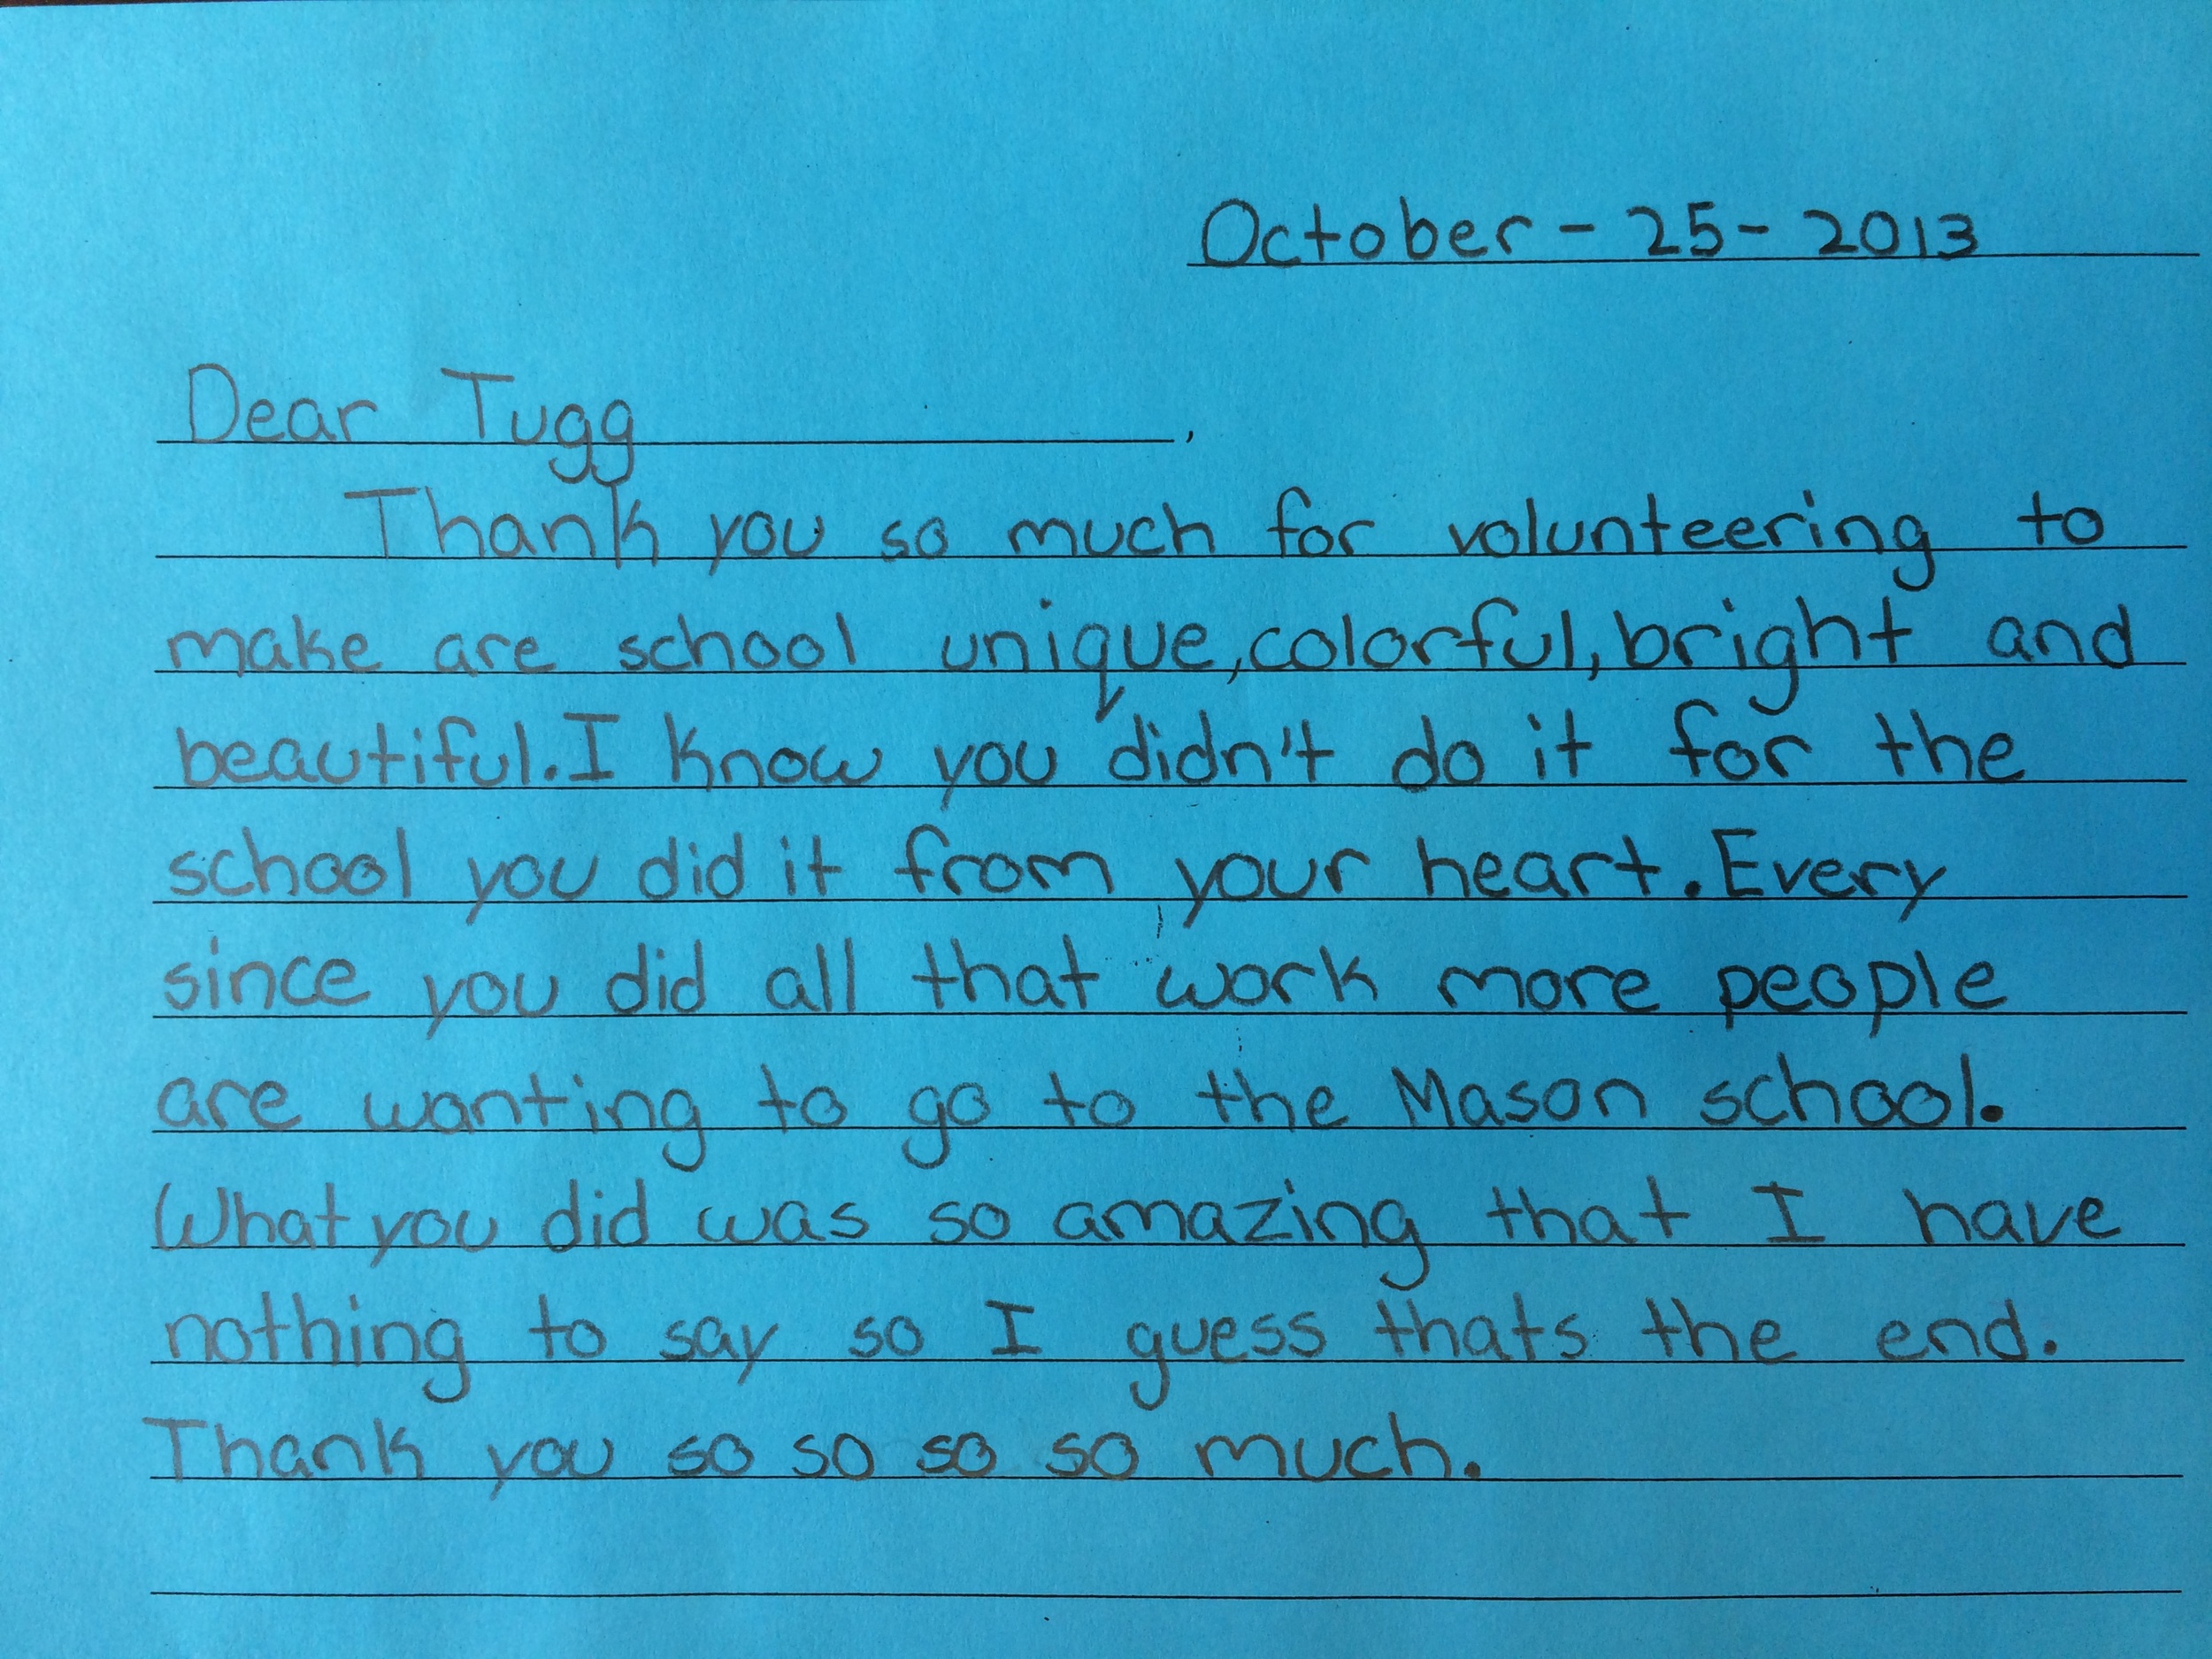 October - 25 - 2013
Dear Tugg,
Thank you so much for volunteering to
make are school unique, colorful, bright and
beautiful. I know you didn't do it for the
school you did it from your heart. Every
since you did all that work more people
are wanting to go to the Mason school.
What you did was so amazing that I have
nothing to say so I guess thats the end.
Thank you so so so so much.